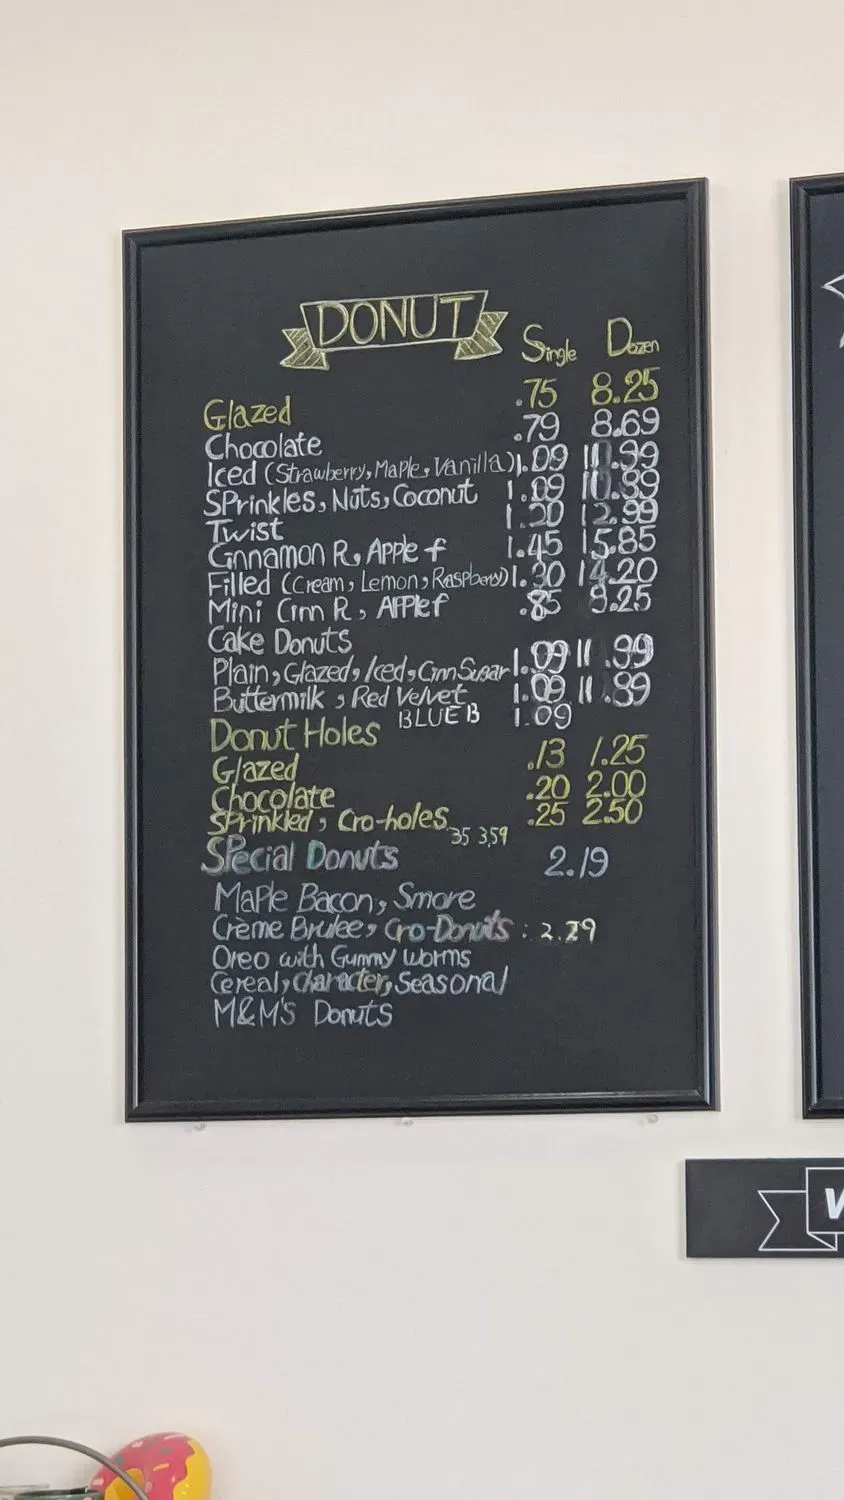 DONUT
Single Dozen
Glazed .75 8.25
Chocolate .79 8.69
Iced (Strawberry, Maple, Vanilla) 1.09 11.99
SPrinkles, Nuts, Coconut 1.09 10.89
Twist 1.20 12.99
Cinnamon R, Apple f 1.45 15.85
Filled (Cream, Lemon, Raspberry) 1.30 14.20
Mini Cinn R, APPlef .85 9.25
Cake Donuts
Plain, Glazed, Iced, Cinn Sugar 1.09 11.99
Buttermilk, Red Velvet 1.09 11.89
BLUE B 1.09
Donut Holes
Glazed .13 1.25
Chocolate .20 2.00
SPrinkled, Cro-holes .25 2.50
35 3.59
SPecial Donuts 2.19
MaPle Bacon, Smore
Crème Brulee, Cro-Donuts : 2.29
Oreo with Gummy worms
Cereal, character, Seasonal
M&M'S Donuts